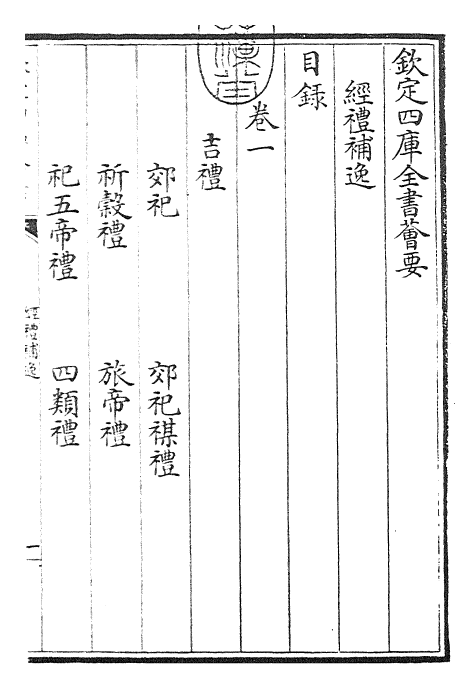 欽定四庫全書薈要
經禮補逸
目録
卷一
吉禮
郊祀 郊祀禖禮
祈穀禮 旅帝禮
祀五帝禮 四類禮
經禮補逸
一